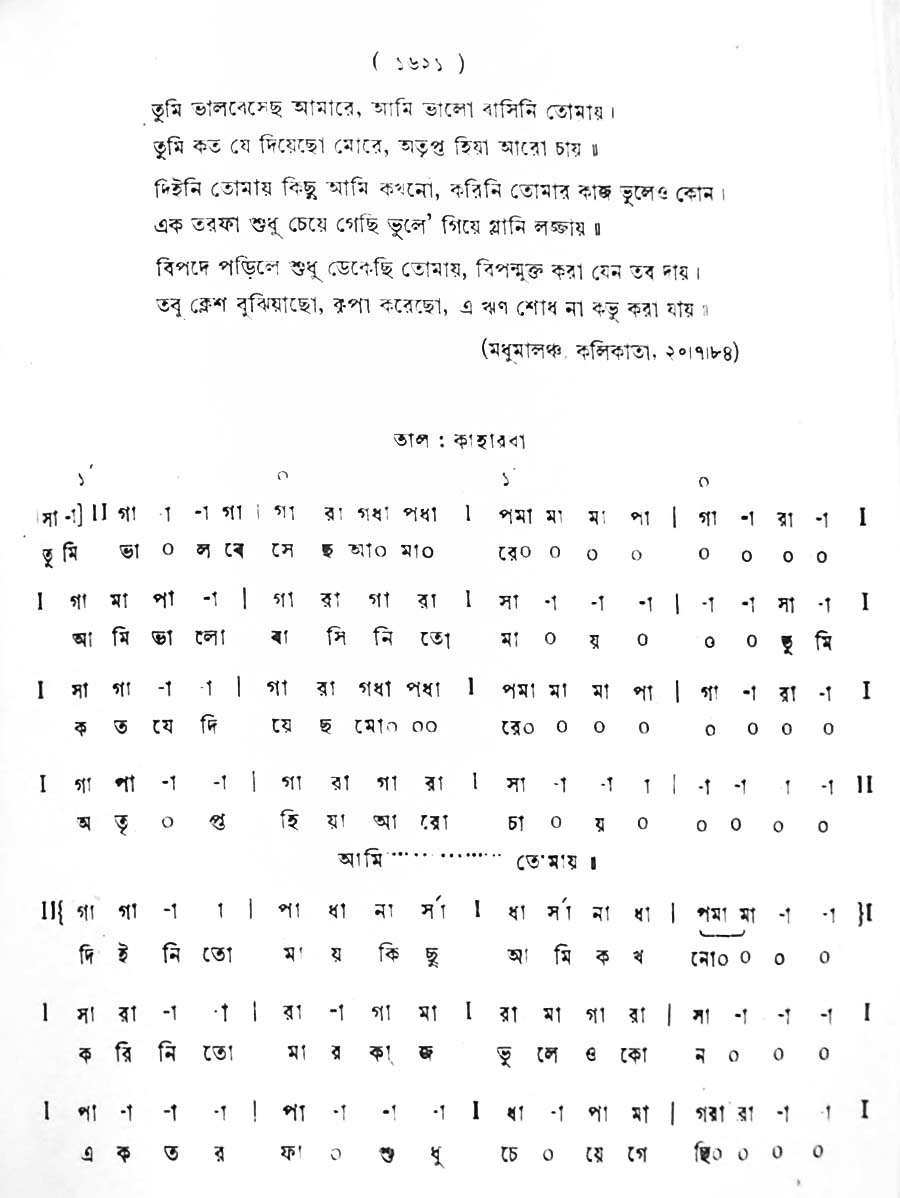 ( ১৬২১ )
তুমি ভালবেসেছ আমারে, আমি ভালো বাসিনি তোমায়।
তুমি কত যে দিয়েছো মোরে, অতৃপ্ত হিয়া আরো চায়॥
দিইনি তোমায় কিছু আমি কখনো, করিনি তোমার কাজ ভুলেও কোন।
এক তরফা শুধু চেয়ে গেছি ভুলে' গিয়ে গ্লানি লজ্জায়॥
বিপদে পড়িলে শুধু ডেকেছি তোমায়, বিপন্মুক্ত করা যেন তব দায়।
তবু ক্লেশ বুঝিয়াছো, কৃপা করেছো, এ ঋণ শোধ না কভু করা যায়॥
(মধুমালঞ্চ, কলিকাতা, ২০।৭।৮৪)
তাল : কাহারবা
১´ ০ ১´ ০
[সা -া] II গা -া -া গা | গা রা গধা পধা I পমা মা মা পা | গা -া রা -া I
তু মি ভা ০ ল বে সে ছ আ০ মা০ রে০ ০ ০ ০ ০ ০ ০ ০
I গা মা পা -া | গা রা গা রা I সা -া -া -া | -া -া সা -া I
আ মি ভা লো বা সি নি তো মা ০ য় ০ ০ ০ তু মি
I সা গা -া -া | গা রা গধা পধা I পমা মা মা পা | গা -া রা -া I
ক ত যে দি য়ে ছ মো০ ০০ রে০ ০ ০ ০ ০ ০ ০ ০
I গা পা -া -া | গা রা গা রা I সা -া -া া | -া -া া -া II
অ তৃ ০ প্ত হি য়া আ রো চা ০ য় ০ ০ ০ ০ ০
আমি ............... তোমায়॥
II{ গা গা -া া | পা ধা না র্সা I ধা র্সা না ধা | পমা মা -া -া }I
দি ই নি তো মা য় কি ছু আ মি ক খ নো০ ০ ০ ০
I সা রা -া -া | রা -া গা মা I রা মা গা রা | সা -া -া -া I
ক রি নি তো মা র কা জ ভু লে ও কো ন ০ ০ ০
I পা -া -া -া | পা -া -া -া I ধা -া পা মা | গরা রা -া -া I
এ ক ত র ফা ০ শু ধু চে ০ য়ে গে ছি০ ০ ০ ০